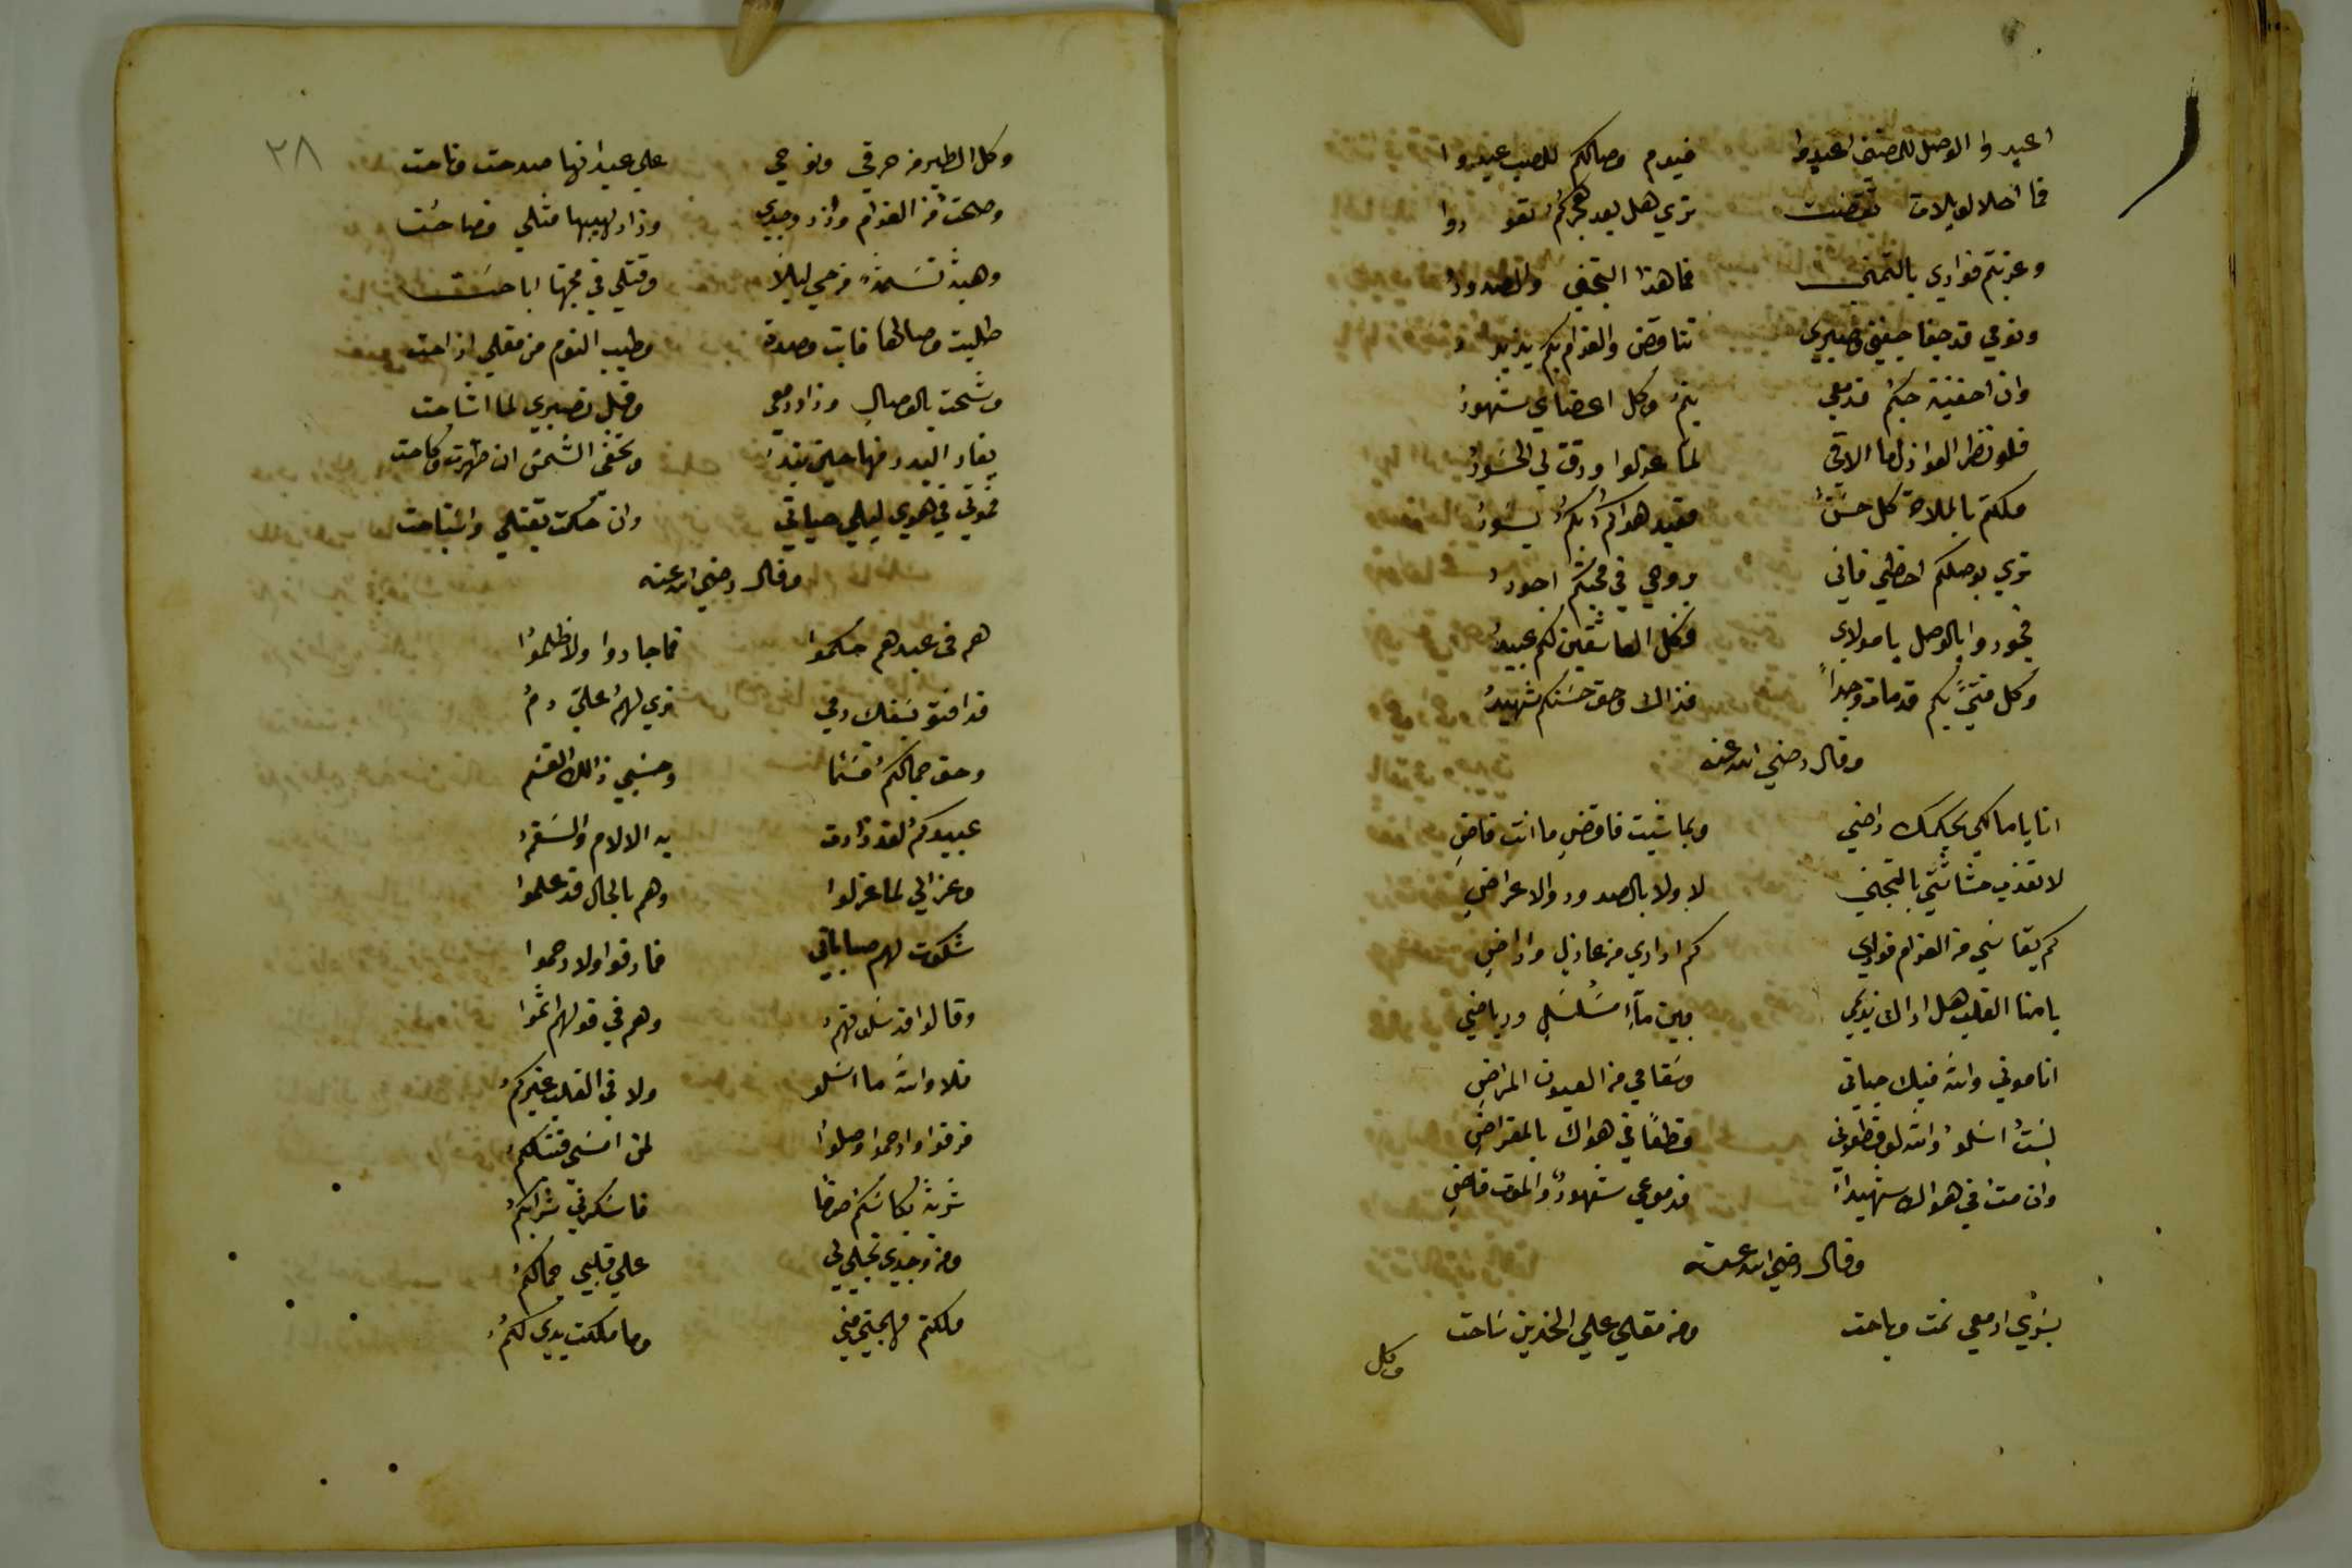 اعيدوا الوصل للمضنى اعيدوا فيوم وصالكم للصب عيد
فما احلا لويلات تقضت تري هل بعد هجركم تعودوا
وعذبتم فوادي بالتجني فما هذا التجني والصدود
ونومي قد جفا جفني وصبري تناقص والغرام بكم يزيد
وان اخفيت حبكم فدمعي ينم وكل اعضاي شهود
فلو نظر العواذل ما الاقي لما عذلوا ورق لي الحسود
ملكتم بالملاحة كل حسن فعبد هواكم بكم يسود
تري بوصلكم احظي فاني بروحي في محبتكم اجود
فجودوا بالوصل يا موالي فكل العاشقين لكم عبيد
وكل فتيً بكم قد مات وجداً فذاك وحق حسنكم شهيد
وقال رضي الله عنه
انا يا مالكي بحكمك راضي وبما شيت فاقض ما انت قاض
لا تعذب حشاشتي بالتجني لا ولا بالصدود والاعراض
كم يقاسي من الغرام فوادي كم اداري من عاذل واراضي
يا منا القلب هل اراك نديمي بين ماءٍ مسلسل ورياض
انا موتي والله فيك حياتي وسقامي من العيون المراض
لست اسلو والله لو قطعوني قطعاً في هواك بالمقراض
وان مت في هواك شهيداً فدموعي شهود والموت قاض
وقال رضي الله عنه
بسري ادمعي نمت وباحت ومن مقلي علي الخدين ساحت
وكل
٢٨
وكل الطير من حرقي ونوحي علي عيدانها صدحت وناحت
وصحت من الغرام وزاد وجدي وزاد لهيبها مثلي وصاحت
وهبت نسمة من حي ليلا وقتلي في محبتها اباحت
طلبت وصالها فابت وصدت وطيب النوم من مقلي ازاحت
وشحت بالوصال وزاد دمعي وقل تصبري لما اشاحت
يغار البدر منها حين تبدو وتخفى الشمس ان ظهرت ولاحت
فموتي في هوي ليلي حياتي وان حكمت بقتلي واستباحت
وقال رضي الله عنه
هم في عبدهم حكموا فما جاروا ولا ظلموا
قد افتو بسفك دمي تري لهم علي دم
وحق جمالكم قسما وحسبي ذلك القسم
عبيدكم لقد زادت به الالام والسقم
وعذالي لما عذلوا وهم بالحال قد علموا
شكوت لهم صباباتي فما رقوا ولا رحموا
وقالوا قد سلوتهم وهم في قولهم اثموا
فلا والله ما اسلو ولا في القلب غيركم
فرقوا وارحموا وصلوا لمن امسي قتيلكم
شربت بكاسكم صرفا فاسكرني شرابكم
ومن وجدي تجلي لي علي قلبي جمالكم
ملكتم مهجتي مني وما ملكت يدي لكم